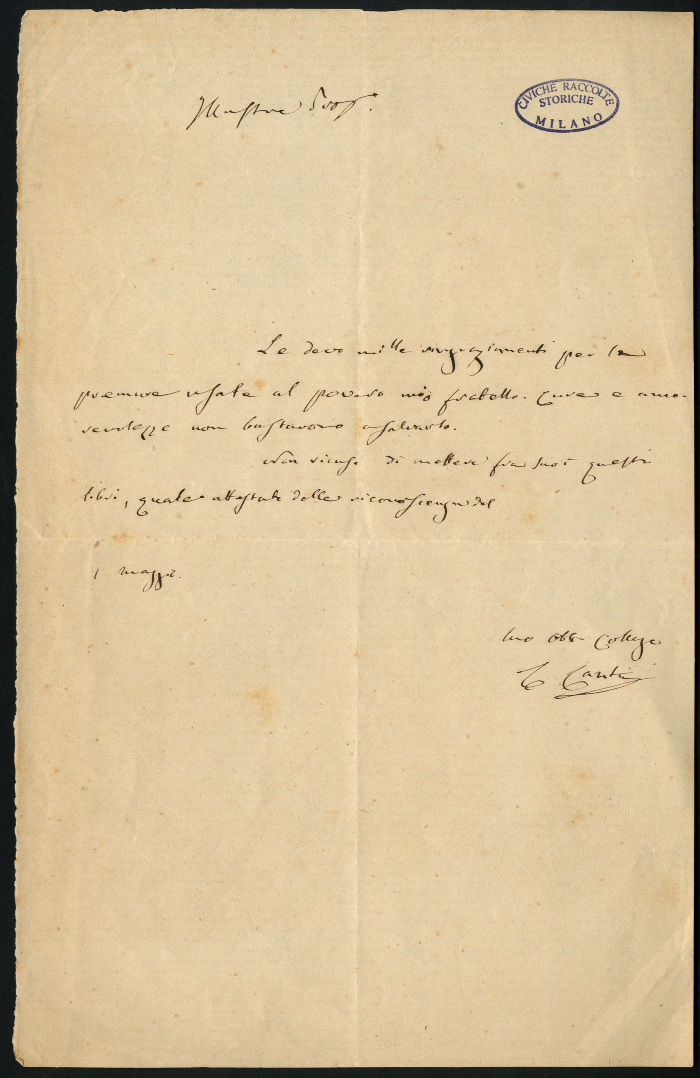 CIVICHE RACCOLTE
STORICHE
MILANO
Illustre Prof.
Le devo mille ringraziamenti per le
premure usate al povero mio fratello. Cure e amo-
revolezze non bastarono a salvarlo.
Non ricusi di mettere fra suoi questi
libri, quale attestato della riconoscenza del
1 maggio.
suo obb. Collega
C Cantù